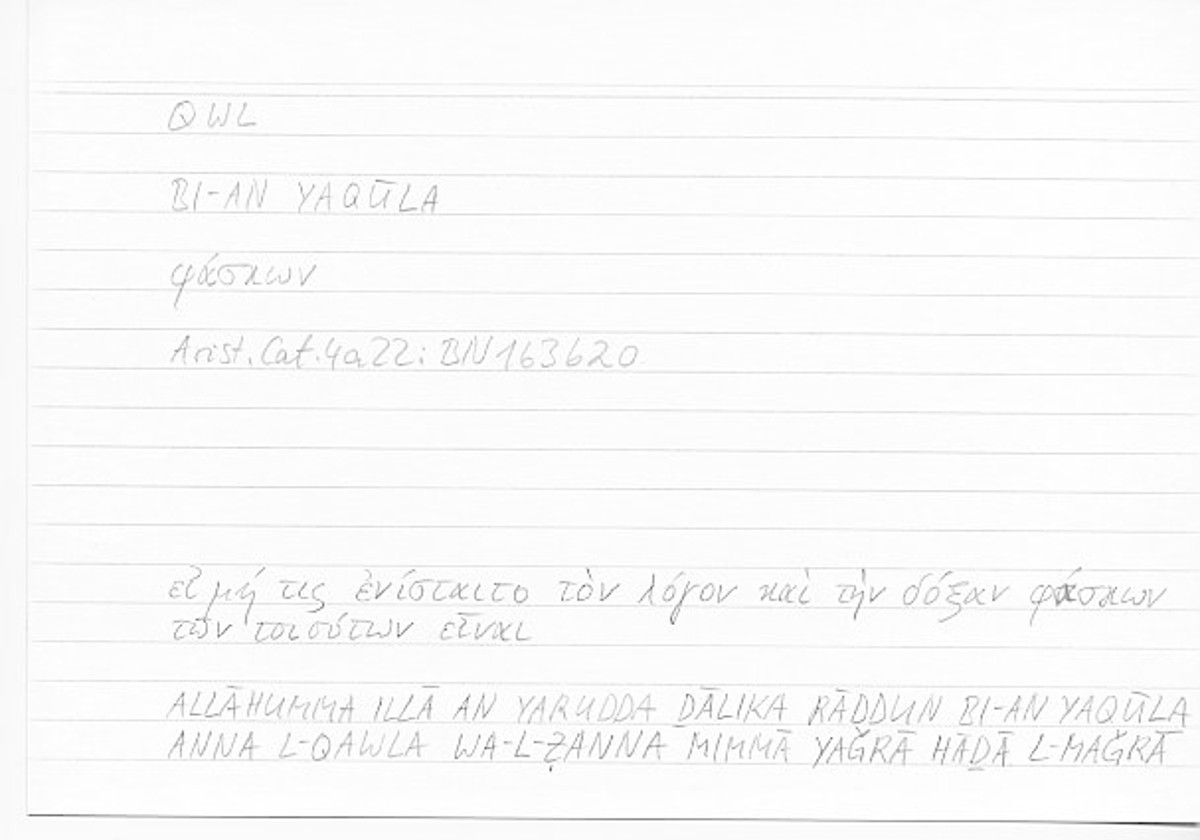 QWL
BI-AN YAQŪLA
φάσκων
Arist. Cat. 4a22: BN 163620
εἰ μή τις ἐνίσταιτο τὸν λόγον καὶ τὴν δόξαν φάσκων
τῶν τοιούτων εἶναι
ALLĀHUMMA ILLĀ AN YARUDDA ḎĀLIKA RĀDDUN BI-AN YAQŪLA
ANNA L-QAWLA WA-L-ẒANNA MIMMĀ YAǦRĀ HĀḎĀ L-MAǦRĀ